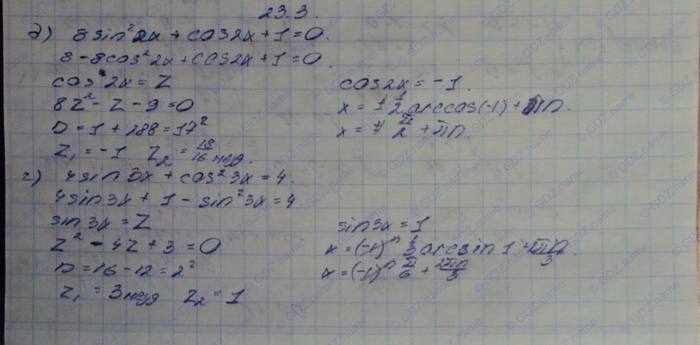 23.3.
в) 8sin²2x + cos2x + 1 = 0.
8 - 8cos²2x + cos2x + 1 = 0.
cos2x = Z
8Z² - Z - 9 = 0
D = 1 + 288 = 17²
Z₁ = -1 Z₂ = 18/16 не уд.
cos2x = -1.
x = ± 1/2 arccos(-1) + πn.
x = ± π/2 + πn.
г) 4sin3x + cos²3x = 4.
4sin3x + 1 - sin²3x = 4
sin3x = Z
Z² - 4Z + 3 = 0
D = 16 - 12 = 2²
Z₁ = 3 не уд Z₂ = 1
sin3x = 1
x = (-1)ⁿ 1/3 arcsin 1 +
x = (-1)ⁿ π/6 +
© GDZ.name